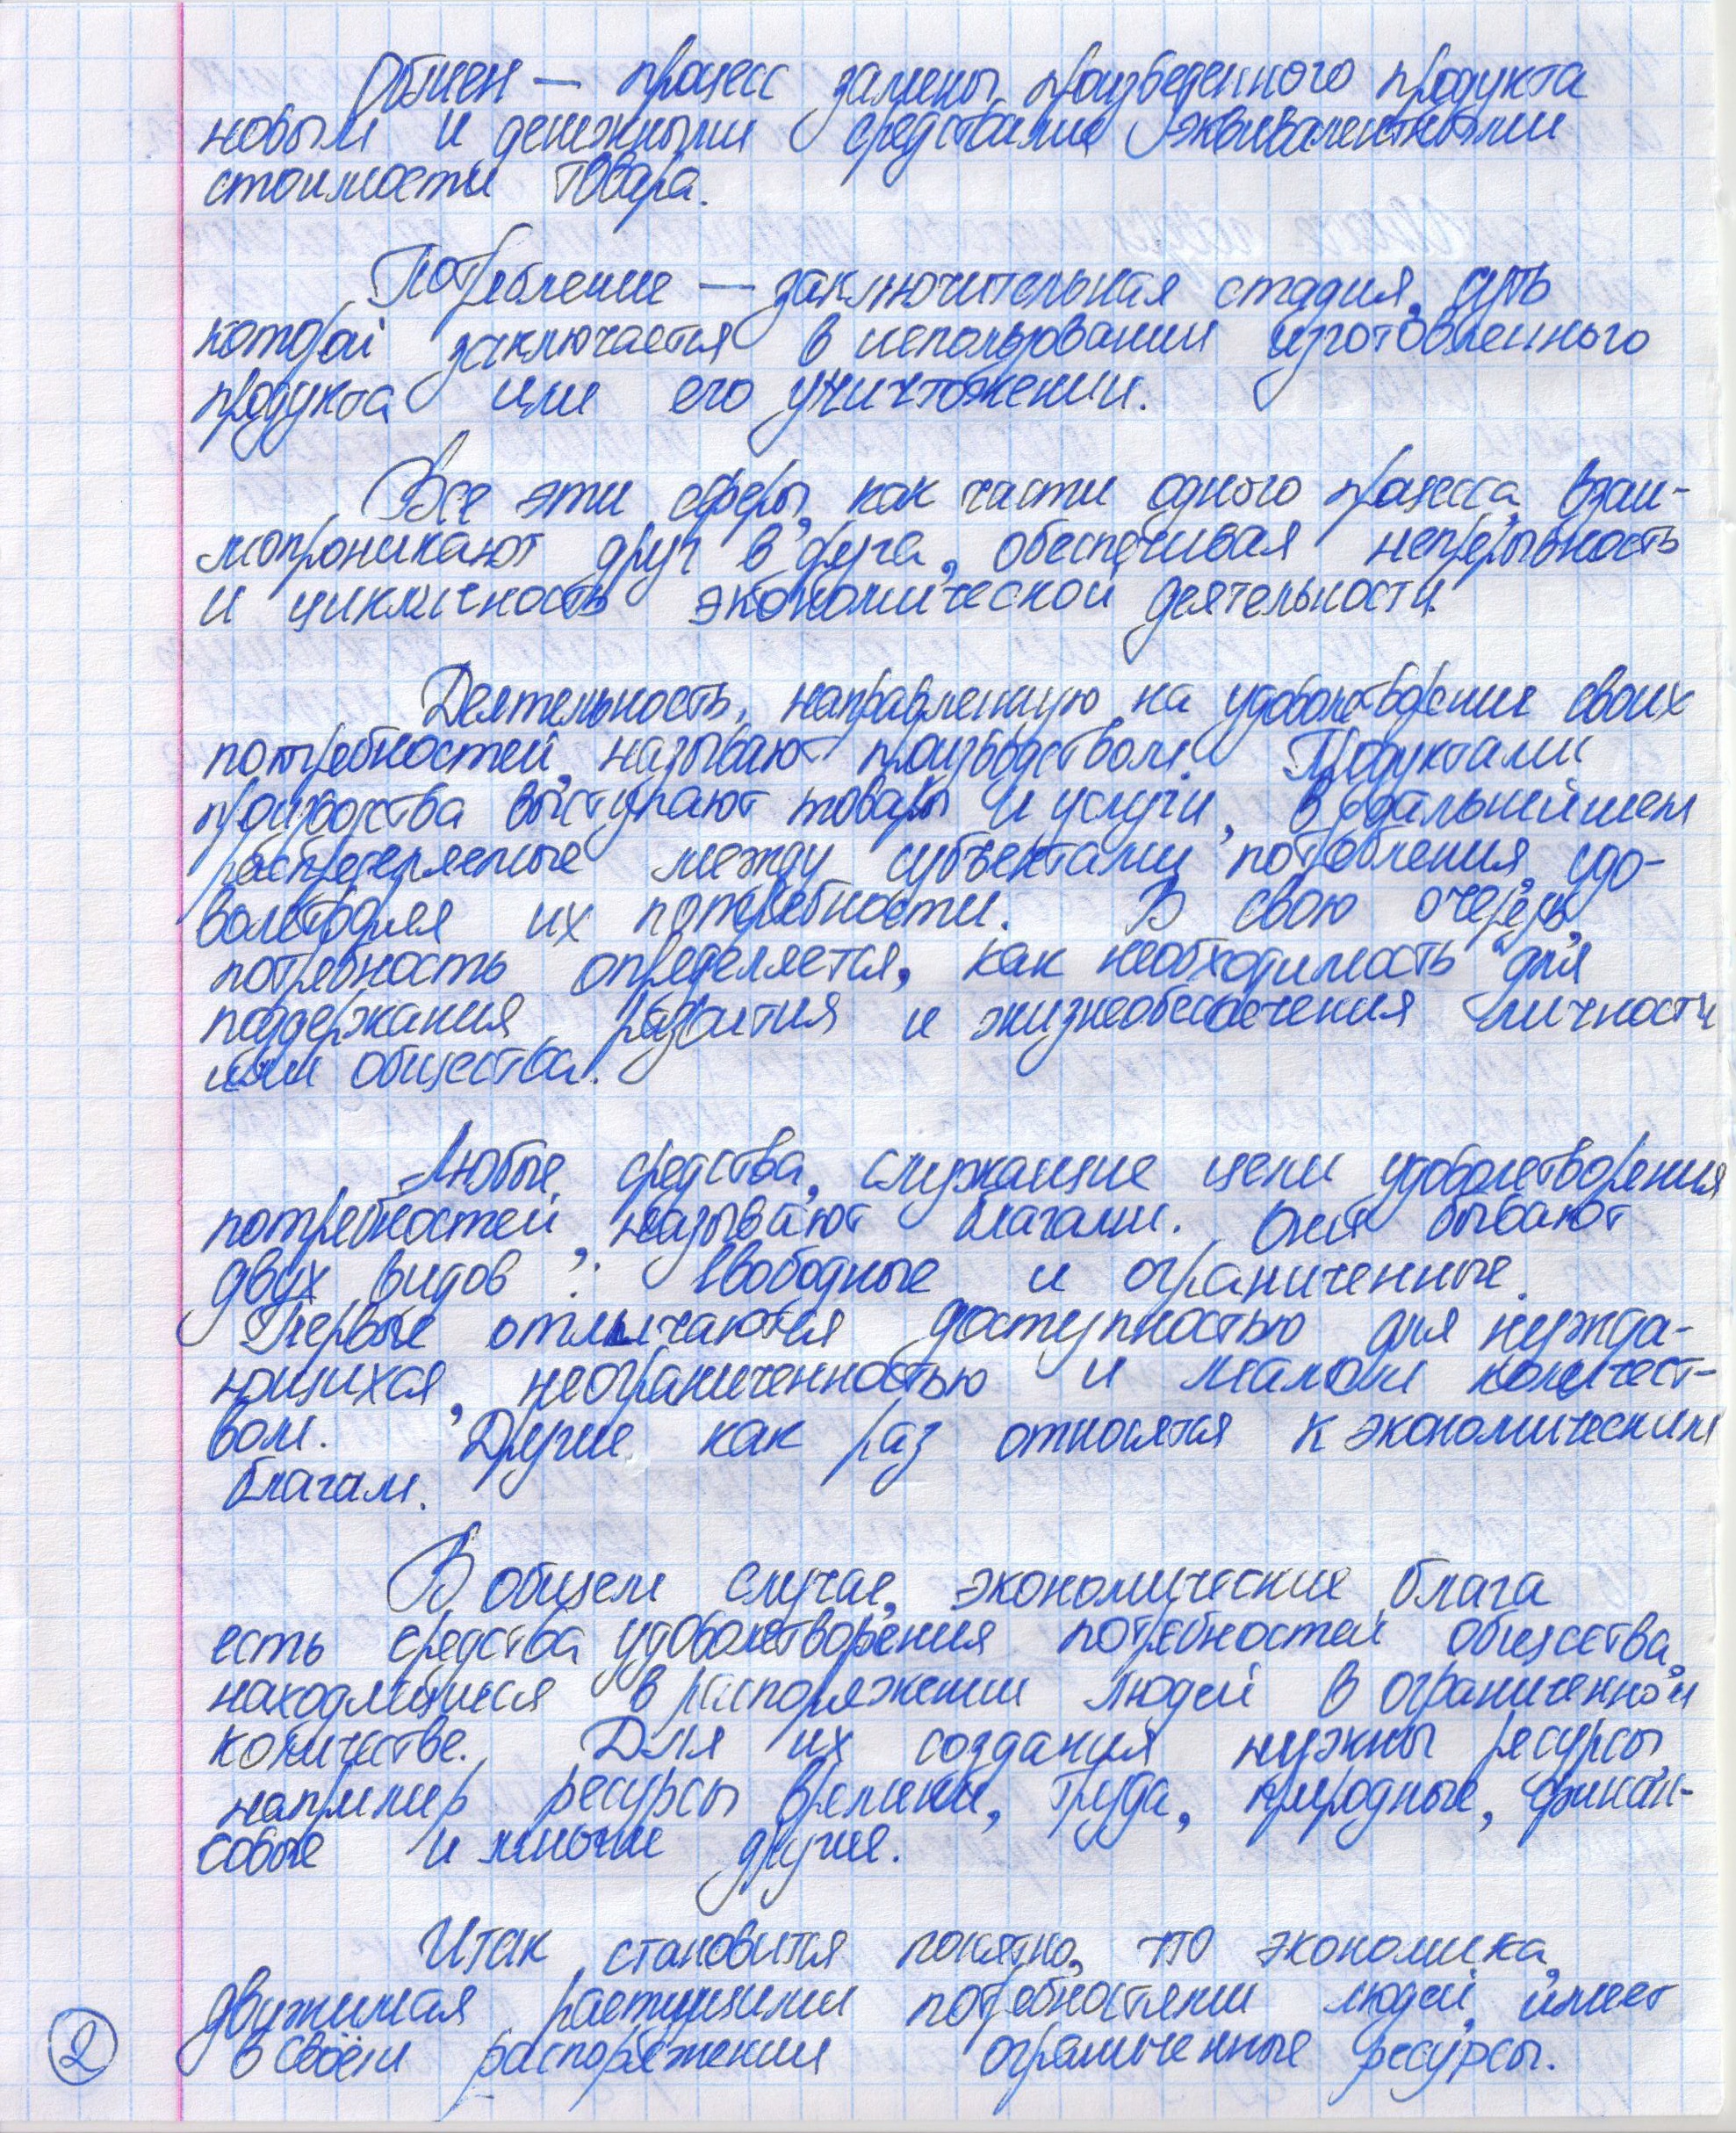 Обмен — процесс замены произведенного продукта
новым и денежными средствами эквивалентными
стоимости товара.
Потребление — заключительная стадия, суть
которой заключается в использовании изготовленного
продукта или его уничтожении.
Все эти сферы, как части одного процесса, взаи-
мопроникают друг в друга, обеспечивая непрерывность
и цикличность экономической деятельности.
Деятельность, направленную на удовлетворение своих
потребностей, называют производством. Продуктами
производства выступают товары и услуги, в дальнейшем
распределяемые между субъектами потребления, удо-
влетворяя их потребности. В свою очередь,
потребность определяется, как необходимость для
поддержания, развития и жизнеобеспечения личности
или общества.
Любые средства, служащие цели удовлетворения
потребностей, называют благами. Они бывают
двух видов: свободные и ограниченные.
Первые отличаются доступностью для нужда-
ющихся, неограниченностью и малым количест-
вом. Другие как раз относятся к экономическим
благам.
В общем случае, экономические блага
есть средства удовлетворения потребностей общества,
находящиеся в распоряжении людей в ограниченном
количестве. Для их создания нужны ресурсы,
например ресурсы времени, труда, природные, финан-
совые и многие другие.
Итак, становится понятно, что экономика,
движимая растущими потребностями людей, имеет
в своём распоряжении ограниченные ресурсы.
2